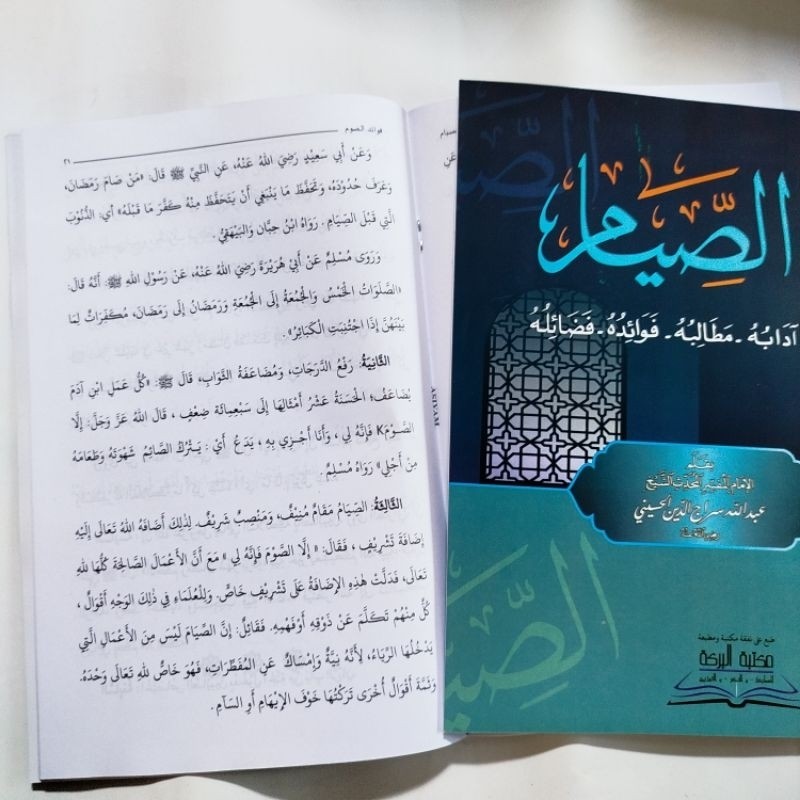 فوائد الصوم
٢١
وَعَنْ أَبِي سَعِيْدٍ رَضِيَ اللهُ عَنْهُ، عَنِ النَّبِيِّ ﷺ قَالَ: «مَنْ صَامَ رَمَضَانَ،
وَعَرَفَ حُدُوْدَهُ، وَتَحَفَّظَ مَا يَنْبَغِي أَنْ يَتَحَفَّظَ مِنْهُ كَفَّرَ مَا قَبْلَهُ» أي: الذُّنُوْبَ
الَّتِي قَبْلَ الصِّيَامِ. رَوَاهُ ابْنُ حِبَّان وَالبَيْهَقِيُّ.
وَرَوَى مُسْلِمٌ عَنْ أَبِي هُرَيْرَةَ رَضِيَ اللهُ عَنْهُ، عَنْ رَسُوْلِ اللهِ ﷺ: أَنَّهُ قَالَ:
«الصَّلَوَاتُ الْخَمْسُ وَالْجُمُعَةُ إِلَى الْجُمُعَةِ وَرَمَضَانُ إِلَى رَمَضَانَ، مُكَفِّرَاتٌ لِمَا
بَيْنَهُنَّ إِذَا اجْتُنِبَتِ الْكَبَائِرُ».
الثَّانِيَةُ: رَفْعُ الدَّرَجَاتِ، وَمُضَاعَفَةُ الثَّوَابِ، قَالَ ﷺ: «كُلُّ عَمَلِ ابْنِ آدَمَ
يُضَاعَفُ؛ الحَسَنَةُ عَشْرُ أَمْثَالِهَا إِلَى سَبْعِمِائَةِ ضِعْفٍ، قَالَ اللهُ عَزَّ وَجَلَّ: إِلَّا
الصَّوْمَK فَإِنَّهُ لِي، وَأَنَا أَجْزِي بِهِ، يَدَعُ أَيْ: يَتْرُكُ الصَّائِمُ شَهْوَتَهُ وَطَعَامَهُ
مِنْ أَجْلِي» رَوَاهُ مُسْلِمٌ.
الثَّالِثَةُ: الصِّيَامُ مَقَامٌ مُنِيْفٌ، وَمَنْصِبٌ شَرِيْفٌ، لِذَلِكَ أَضَافَهُ اللهُ تَعَالَى إِلَيْهِ
إِضَافَةَ تَشْرِيْفٍ، فَقَالَ: «إِلَّا الصَّوْمَ فَإِنَّهُ لِي» مَعَ أَنَّ الأَعْمَالَ الصَّالِحَةَ كُلَّهَا لِلهِ
تَعَالَى، فَدَلَّتْ هَذِهِ الإِضَافَةُ عَلَى تَشْرِيْفٍ خَاصٍّ. وَلِلْعُلَمَاءِ فِي ذَلِكَ الوَجْهِ أَقْوَالٌ،
كُلٌّ مِنْهُمْ تَكَلَّمَ عَنْ ذَوْقِهِ أَوْفَهْمِهِ. فَقَائِلٌ: إِنَّ الصِّيَامَ لَيْسَ مِنَ الأَعْمَالِ الَّتِي
يَدْخُلُهَا الرِّيَاءُ، لِأَنَّهُ نِيَّةٌ وَإِمْسَاكٌ عَنِ المُفَطِّرَاتِ، فَهُوَ خَاصٌّ لِلهِ تَعَالَى وَحْدَهُ.
وَثَمَّةَ أَقْوَالٌ أُخْرَى تَرَكْتُهَا خَوْفَ الإِيْهَامِ أَوِ السَّآمِ.
الصِّيَام
آدَابُهُ - مَطَالِبُهُ - فَوَائِدُهُ - فَضَائِلُهُ
بقلم
الإمام المفسر المحدث الشيخ
عبد الله سراج الدين الحسيني
الصِّيَام
طبع على نفقة مكتبة ومطبعة
مكتبة البركة